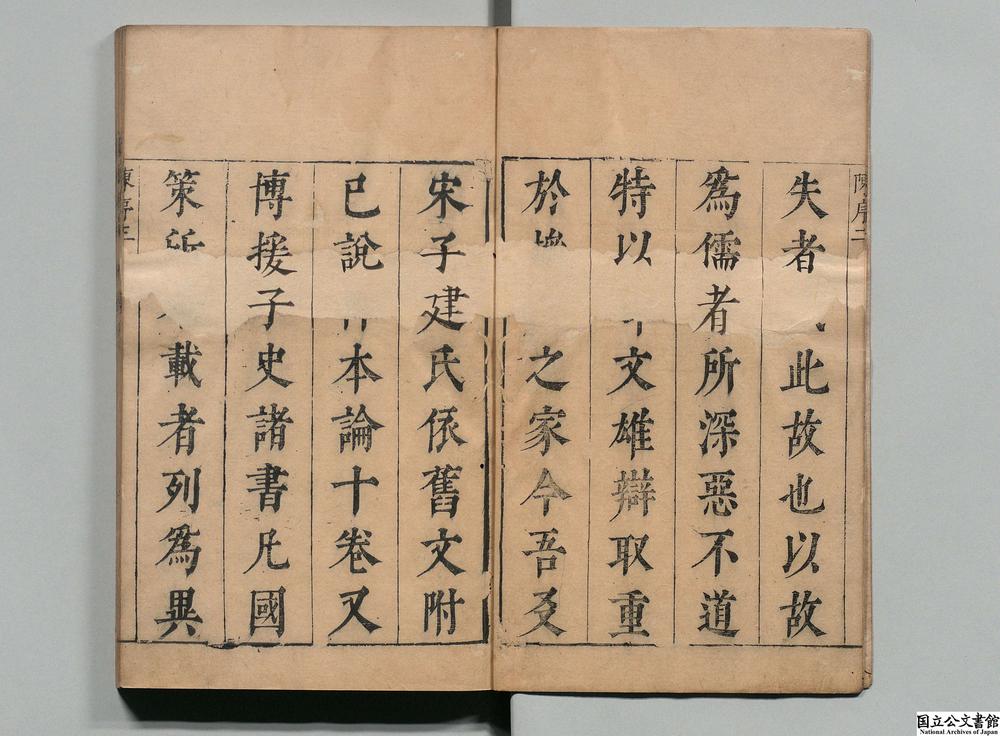 陳序二
失者此故也以故
爲儒者所深惡不道
特以文雄辯取重
於之家今吾友
宋子建氏依舊文附
已說本論十卷又
博援子史諸書凡國
策所載者列爲異
陳序三
国立公文書館
National Archives of Japan